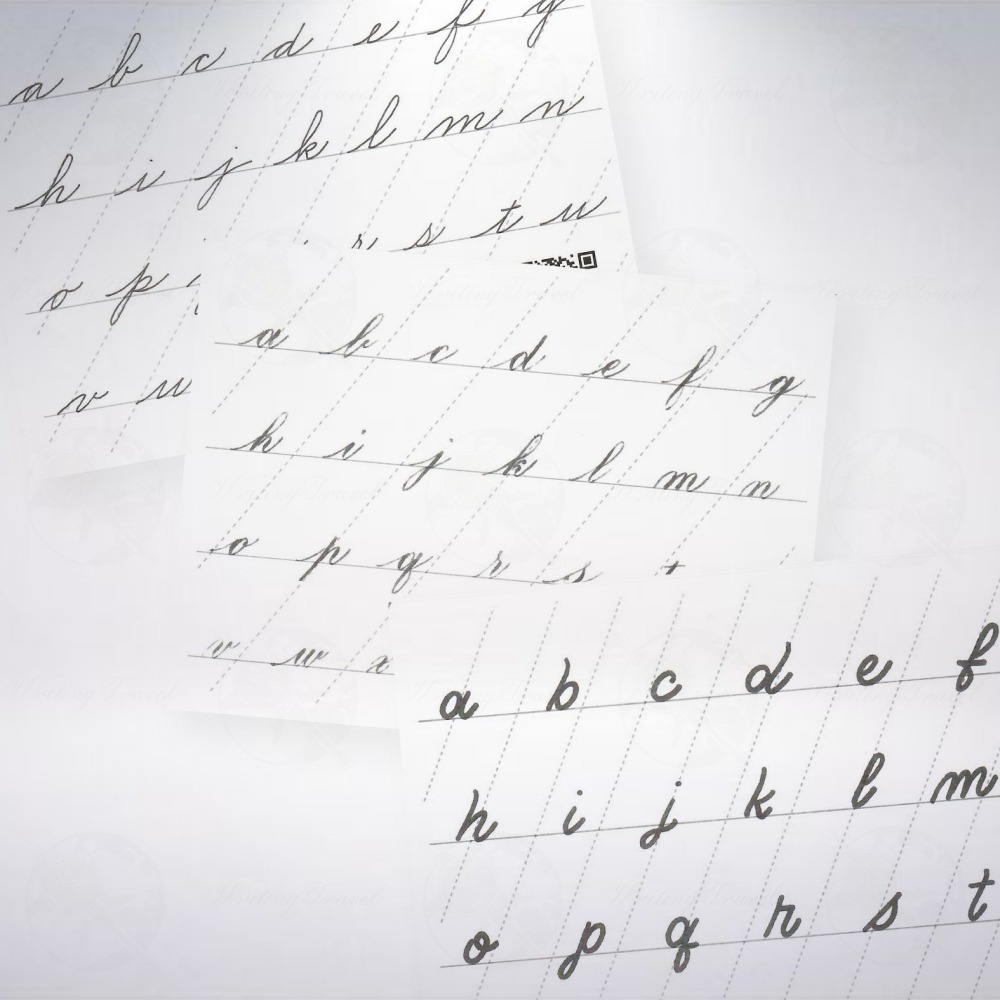 a b c d e f g
h i j k l m n
o p r s t u
v w
a b c d e f g
h i j k l m n
o p q r s t
v w x
a b c d e f
h i j k l m
o p q r s t
Writing Travel